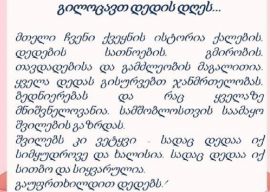 გილოცავთ დედის დღეს...
მთელი ჩვენი ქვეყნის ისტორია ქალების.
დედების სათნოების. გმირობის.
თავდადებისა და გამძლეობის მაგალითია.
ყველა დედას გისურვებთ ჯანმრთელობას.
ბედნიერებას და რაც ყველაზე
მნიშვნელოვანია. სამშობლოსთვის საამაყო
შვილების გაზრდას.
შვილებს კი ვეტყვი . სადაც დედაა იქ
სიმყუდროვე და ხალისია. სადაც დედაა იქ
სითბო და სიყვარულია.
გაუფრთხილდით დედებს.'